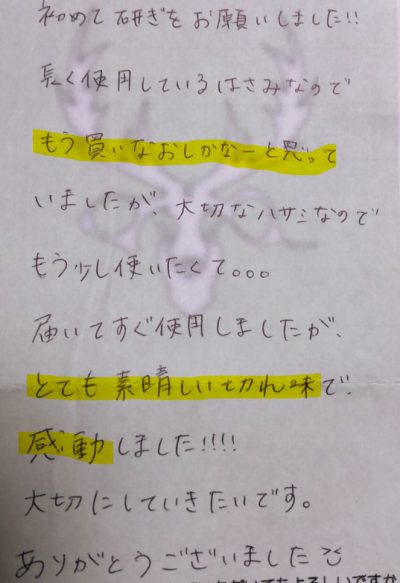 初めて研ぎをお願いしました!!
長く使用しているはさみなので
もう買いなおしかなーと思って
いましたが、大切なハサミなので
もう少し使いたくて。。。
届いてすぐ使用しましたが、
とても素晴しい切れ味で、
感動しました!!!!
大切にしていきたいです。
ありがとうございました
てもよろしいですか